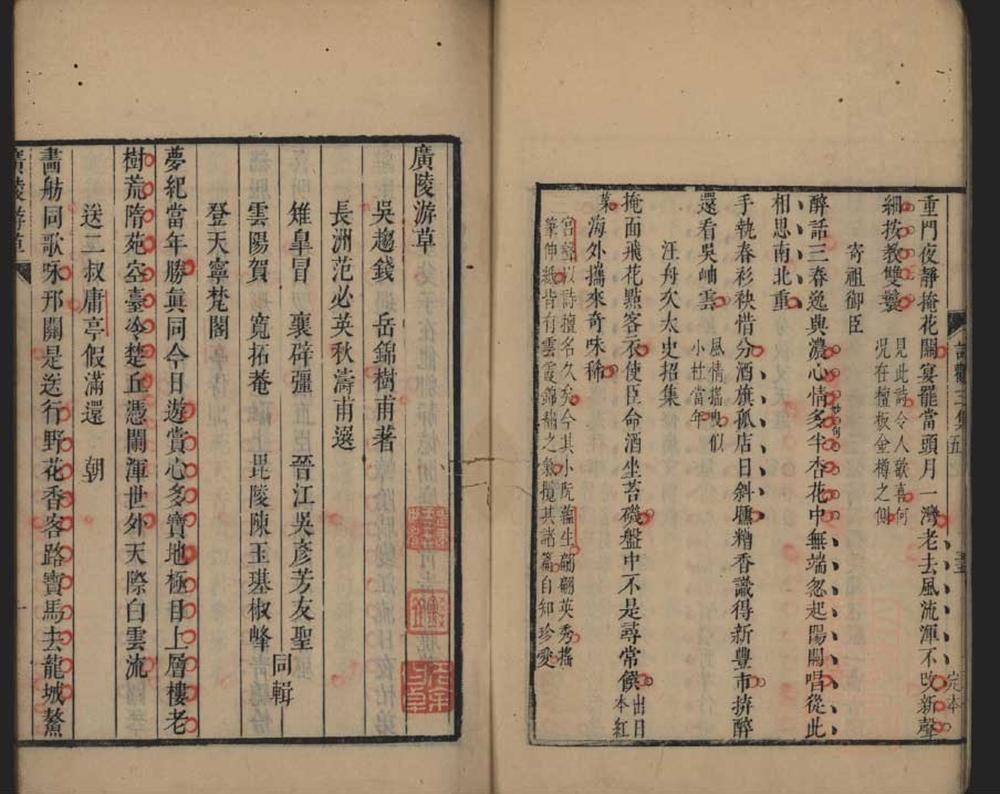 重門夜靜掩花關宴罷當頭月一灣老去風流渾不改新聲
細按教雙鬟
見此詩令人歡喜何
況在檀板金樽之側
寄祖御臣
醉話三春逸興濃心情多半杏花中無端忽起陽關唱從此
相思南北重
手執春衫袂惜分酒旗孤店日斜曛糟香識得新豐市拚醉
還看吳岫雲
風情搖曳似
小杜當年
汪舟次太史招集
掩面飛花點客衣使臣命酒坐苔磯盤中不是尋常候
出日
本紅
菜
海外攜來奇味稀
宮聲以詩檀名久矣今其小阮蘊生翩翩英秀搖
筆伸紙皆有雲霞錦繡之氣攬其諸篇自知珍愛
詩觀三集
廣陵游草
吳趨錢 岳錦樹甫著
長洲范必英秋濤甫選
雉皐冒 襄辟疆 晉江吳彥芳友聖
雲陽賀 寬拓菴 毘陵陳玉璂椒峰
同輯
登天寧梵閣
夢紀當年勝眞同今日遊賞心多寶地極目上層樓老
樹荒隋苑空臺冷楚丘憑闌渾世外天際白雲流
送二叔庸亭假滿還 朝
畵舫同歌咏邗關是送行野花香客路寶馬去龍城鰲
廣陵游草
一